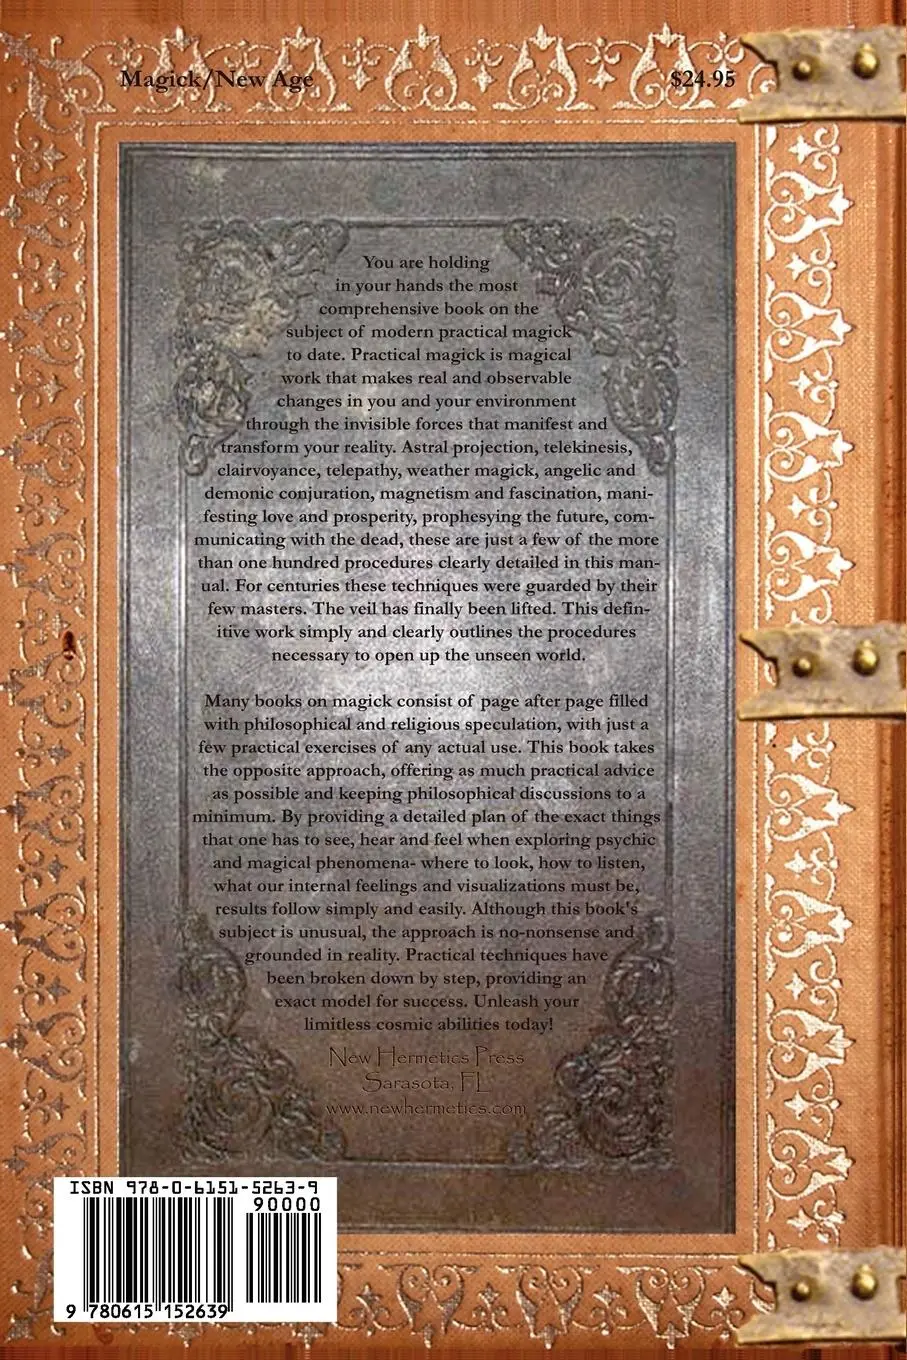 Magick/New Age
$24.95
You are holding
in your hands the most
comprehensive book on the
subject of modern practical magick
to date. Practical magick is magical
work that makes real and observable
changes in you and your environment
through the invisible forces that manifest and
transform your reality. Astral projection, telekinesis,
clairvoyance, telepathy, weather magick, angelic and
demonic conjuration, magnetism and fascination, mani-
festing love and prosperity, prophesying the future, com-
municating with the dead, these are just a few of the more
than one hundred procedures clearly detailed in this man-
ual. For centuries these techniques were guarded by their
few masters. The veil has finally been lifted. This defin-
itive work simply and clearly outlines the procedures
necessary to open up the unseen world.
Many books on magick consist of page after page filled
with philosophical and religious speculation, with just a
few practical exercises of any actual use. This book takes
the opposite approach, offering as much practical advice
as possible and keeping philosophical discussions to a
minimum. By providing a detailed plan of the exact things
that one has to see, hear and feel when exploring psychic
and magical phenomena- where to look, how to listen,
what our internal feelings and visualizations must be,
results follow simply and easily. Although this book's
subject is unusual, the approach is no-nonsense and
grounded in reality. Practical techniques have
been broken down by step, providing an
exact model for success. Unleash your
limitless cosmic abilities today!
New Hermetics Press
Sarasota, FL
www.newhermetics.com
ISBN 978-0-6151-5263-9
90000
9 780615 152639